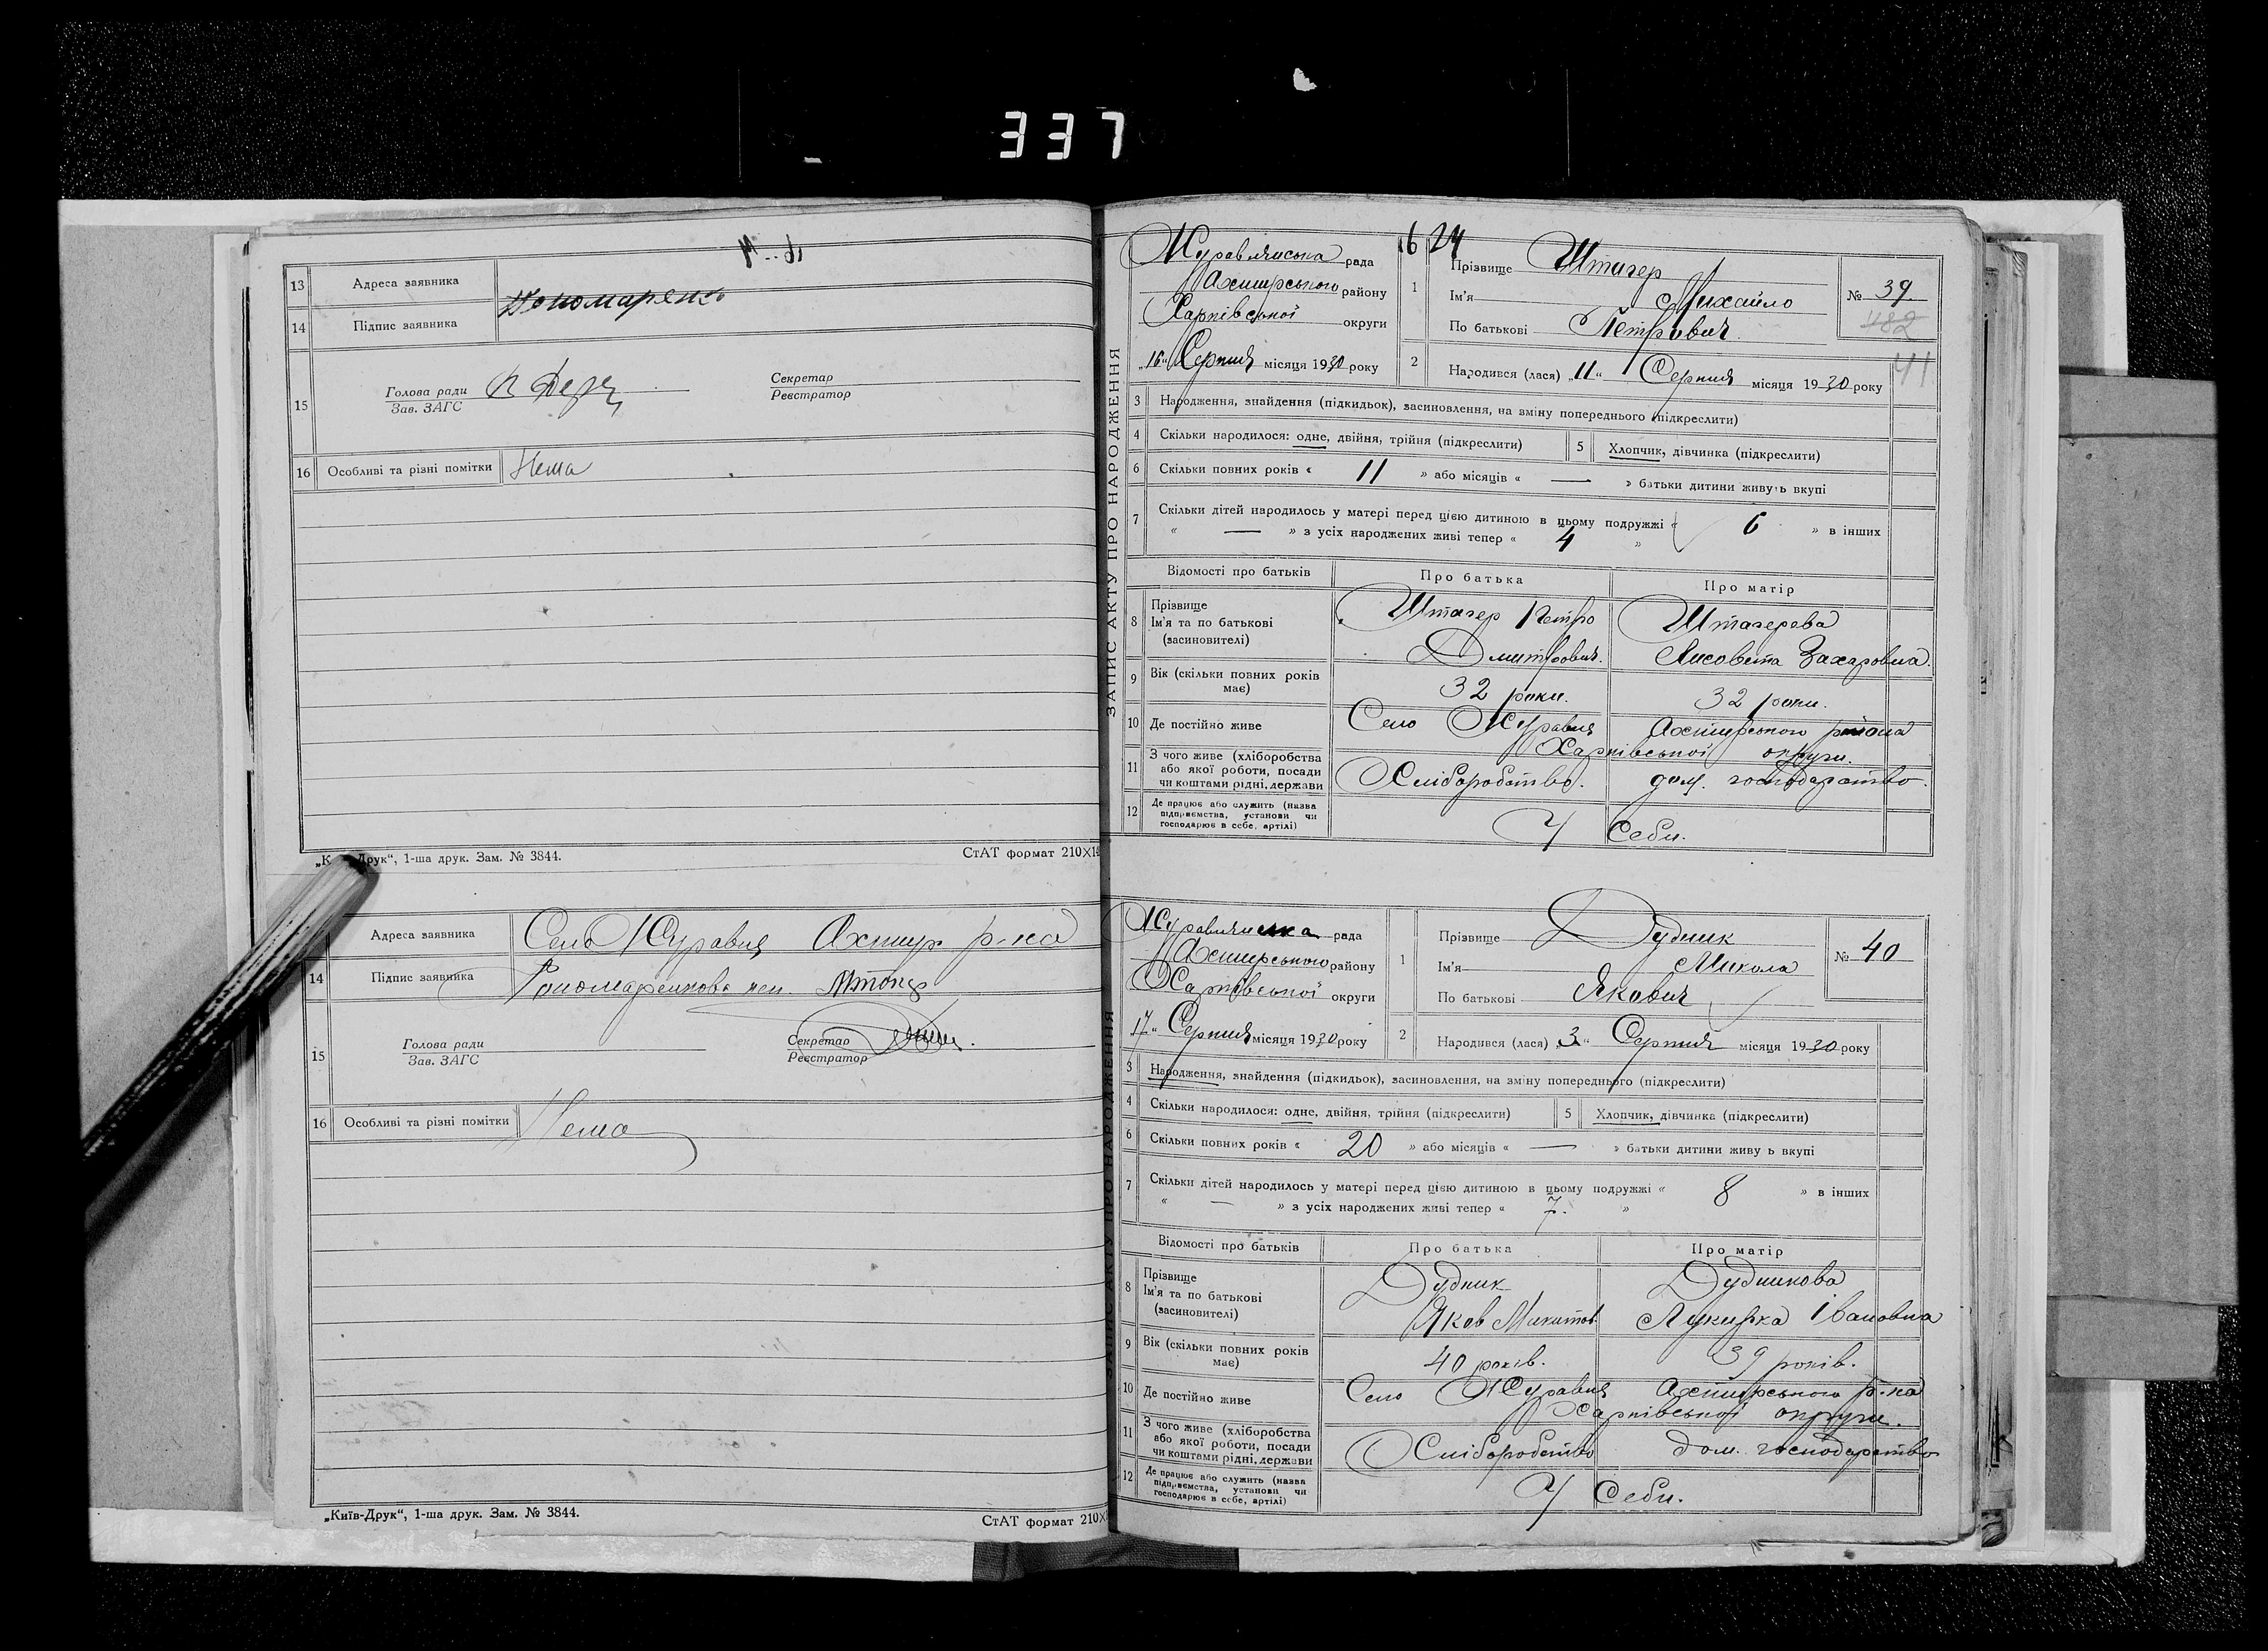 337
13 Адреса заявника
14 Підпис заявника Пономаренко
15 Голова ради
Зав. ЗАГС
Секретар
Реєстратор
16 Особливі та різні помітки Нема
Друк“, 1-ша друк. Зам. № 3844.
СтАТ формат 210×1
Адреса заявника Село Журавня Ахтир р-на
14 Підпис заявника Пономаренкова
15 Голова ради
Зав. ЗАГС
Секретар
Реєстратор
16 Особливі та різні помітки Нема
„Київ-Друк“, 1-ша друк. Зам. № 3844.
СтАТ формат 210×
ЗАПИС АКТУ ПРО НАРОДЖЕННЯ
рада
Ахтирського району
Харківської округи
„16“ Серпня місяця 1930 року
16 24
1 Прізвище Штагер
Ім'я Михайло
По батькові Петрович
№ 39.
482
41
2 Народився (лася) „11“ Серпня місяця 1930 року
3 Народження, знайдення (підкидьок), засиновлення, на зміну попереднього (підкреслити)
4 Скільки народилося: одне, двійня, трійня (підкреслити) 5 Хлопчик, дівчинка (підкреслити)
6 Скільки повних років « 11 » або місяців « — » батьки дитини живуть вкупі
7 Скільки дітей народилось у матері перед цією дитиною в цьому подружжі « 6 » в інших
« — » з усіх народжених живі тепер « 4 »
Відомості про батьків Про батька Про матір
8 Прізвище
Ім'я та по батькові
(засиновителі)
Штагер Петро
Дмитрович.
Штагерева
Лисовета Захаровна.
9 Вік (скільки повних років має) 32 роки. 32 роки.
10 Де постійно живе Село Журавня Ахтирського района
Харківської округи.
11 З чого живе (хліборобства
або якої роботи, посади
чи коштами рідні, держави
Хліборобство. дом. господарство.
12 Де працює або служить (назва
підприємства, установи чи
господарює в себе, артілі)
У Себи.
ЗАПИС АКТУ ПРО НАРОДЖЕННЯ
рада
Ахтирського району
Харківської округи
17“ Серпня місяця 1930 року
1 Прізвище Дудник
Ім'я Микола
По батькові Якович
№ 40
2 Народився (лася) „3“ Серпня місяця 1930 року
3 Народження, знайдення (підкидьок), засиновлення, на зміну попереднього (підкреслити)
4 Скільки народилося: одне, двійня, трійня (підкреслити) 5 Хлопчик, дівчинка (підкреслити)
6 Скільки повних років « 20 » або місяців « — » батьки дитини живу ь вкупі
7 Скільки дітей народилось у матері перед цією дитиною в цьому подружжі « 8 » в інших
« — » з усіх народжених живі тепер « 7. »
Відомості про батьків Про батька Про матір
8 Прізвище
Ім'я та по батькові
(засиновителі)
Дудник
Яков Микитов
Дудникова
Лукирка Івановна
9 Вік (скільки повних років має) 40 років. 39 років.
10 Де постійно живе Село Журавня Ахтирського р-на
Харківської округи.
11 З чого живе (хліборобства
або якої роботи, посади
чи коштами рідні, держави
Хліборобство дом. господарство
12 Де працює або служить (назва
підприємства, установи чи
господарює в себе, артілі)
У Себи.